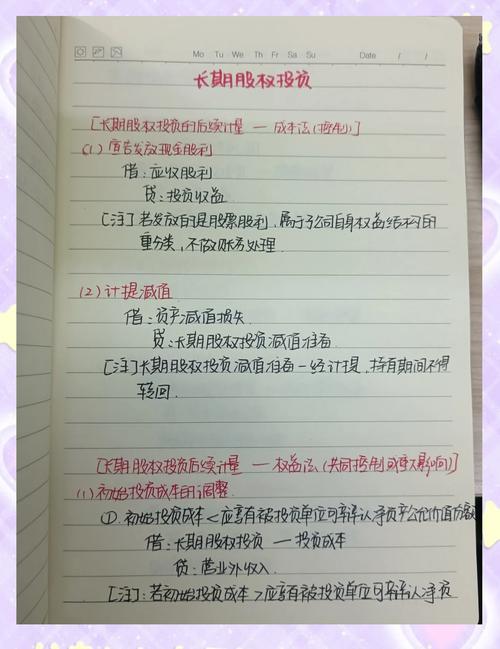 Mo Tu We Th Fr Sa Su Date / /
长期股权投资
[长期股权投资的后续计量 — 成本法(控制)]
(1) 宣告发放现金股利
借:应收股利
贷:投资收益
[注] 若发放的是股票股利,属于子公司自身权益结构的
重分类,不做账务处理.
(2) 计提减值
借:资产减值损失
贷:长期股权投资减值准备
[注]长期股权投资减值准备一经计提,持有期间不得
转回.
[长期股权投资后续计量 — 权益法(共同控制或重大影响)]
(1) 初始投资成本的调整
①.初始投资成本<应享有被投资单位可辨认净资产公允价值份额
借:长期股权投资 — 投资成本
贷:营业外收入
[注]:若初始投资成本>应享有被投资单位可辨认净资